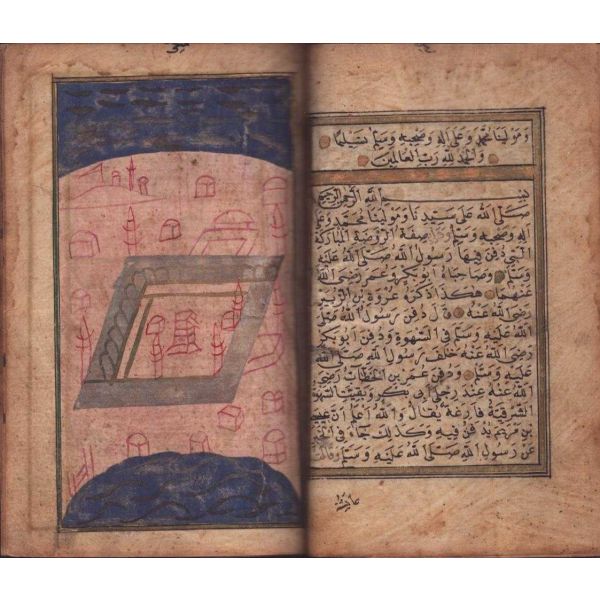 وَمَوْلَيْنَا مُحَمَّدٍ وَعَلَى اٰلِهِ وَصَحْبِهِ وَسَلَّمَ تَسْلِيمًا
وَالْحَمْدُ لِلّٰهِ رَبِّ الْعَالَمِينَ
بِسْمِ اللّٰهِ الرَّحْمٰنِ الرَّحِيمِ
صَلَّى اللّٰهُ عَلَى سَيِّدِنَا وَمَوْلَيْنَا مُحَمَّدٍ وَعَلَى
اٰلِهِ وَصَحْبِهِ وَسَلَّمَ وَهٰذِهِ صِفَةُ الرَّوْضَةِ الْمُبَارَكَةِ
الَّتِي دُفِنَ فِيهَا رَسُولُ اللّٰهِ صَلَّى اللّٰهُ عَلَيْهِ
وَسَلَّمَ وَصَاحِبَاهُ اَبُو بَكْرٍ وَعُمَرُ رَضِيَ اللّٰهُ
عَنْهُمَا هٰكَذَا ذَكَرَهُ عُرْوَةُ بْنُ الزُّبَيْرِ
رَضِيَ اللّٰهُ عَنْهُ قَالَ دُفِنَ رَسُولُ اللّٰهِ صَلَّى
اللّٰهُ عَلَيْهِ وَسَلَّمَ فِي السَّهْوَةِ وَدُفِنَ اَبُو بَكْرٍ
رَضِيَ اللّٰهُ عَنْهُ خَلْفَ رَسُولِ اللّٰهِ صَلَّى اللّٰهُ
عَلَيْهِ وَسَلَّمَ وَدُفِنَ عُمَرُ بْنُ الْخَطَّابِ رَضِيَ
اللّٰهُ عَنْهُ عِنْدَ رِجْلَيْ اَبِي بَكْرٍ وَبَقِيَتِ السَّهْوَةُ
الشَّرْقِيَّةُ فَارِغَةً يُقَالُ وَاللّٰهُ اَعْلَمُ اَنَّ عِيسَى
بْنَ مَرْيَمَ يُدْفَنُ فِيهِ وَكَذٰلِكَ جَاءَ فِي الْخَبَرِ
عَنْ رَسُولِ اللّٰهِ صَلَّى اللّٰهُ عَلَيْهِ وَسَلَّمَ وَقَالَتْ
عَائِشَةُ